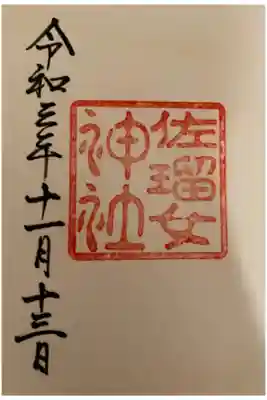 佐瑠女
神社
令和三年十一月十三日